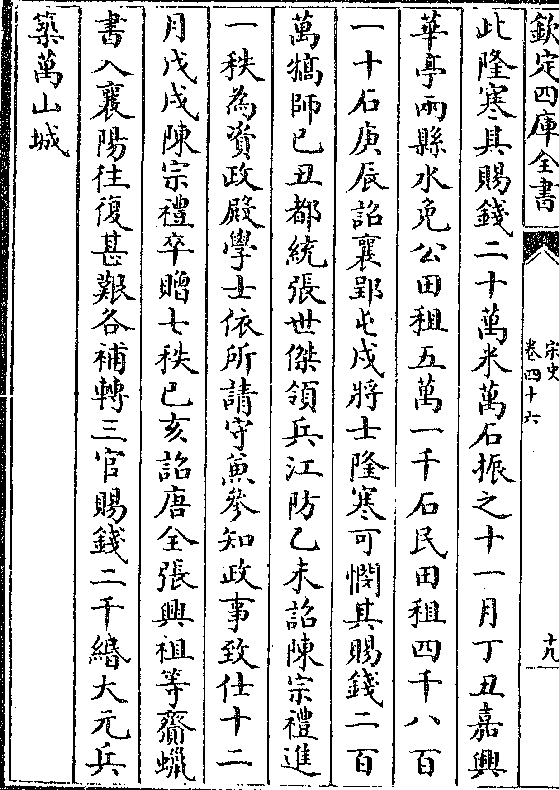 欽定四庫全書
宋史
卷四十六
十九
此隆寒其賜錢二十萬米萬石振之十一月丁丑嘉興
華亭兩縣水免公田租五萬一千石民田租四千八百
一十石庚辰詔襄郢屯戍將士隆寒可憫其賜錢二百
萬犒師已丑都統張世傑領兵江防乙未詔陳宗禮進
一秩為資政殿學士依所請守兼參知政事致仕十二
月戊戌陳宗禮卒贈七秩已亥詔唐全張興祖等齎蠟
書入襄陽往復甚艱各補轉三官賜錢二千緡大元兵
築萬山城